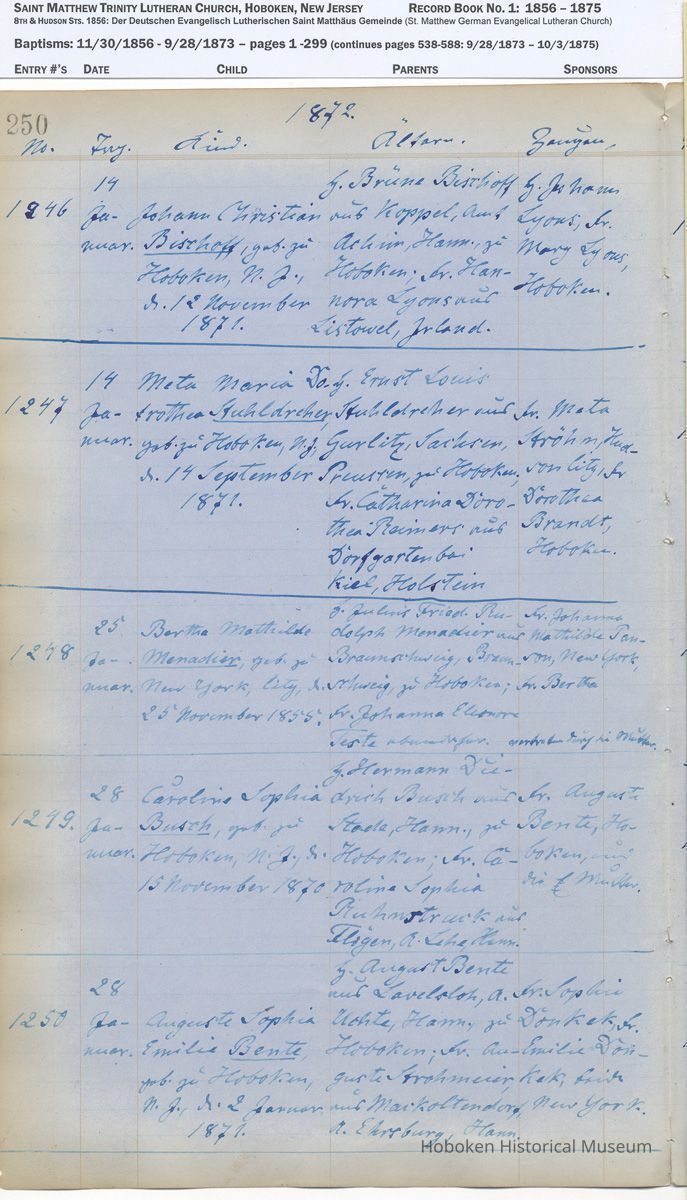 SAINT MATTHEW TRINITY LUTHERAN CHURCH, HOBOKEN, NEW JERSEY RECORD BOOK NO. 1: 1856 – 1875
8TH & HUDSON STS. 1856: Der Deutschen Evangelisch Lutherischen Saint Matthäus Gemeinde (St. Matthew German Evangelical Lutheran Church)
Baptisms: 11/30/1856 - 9/28/1873 – pages 1 -299 (continues pages 538-588: 9/28/1873 – 10/3/1875)
ENTRY #'S DATE CHILD PARENTS SPONSORS
250
1872.
No. Tag. Kind. Ältern. Zeugen,
1246
14
Ja-
nuar.
Johann Christian
Bischoff, geb. zu
Hoboken, N. J.,
d. 12 November
1871.
H. Brüne Bischoff
aus Koppel, Amt
Achim, Hann., zu
Hoboken; Fr. Han-
nora Lyons aus
Listowel, Irland.
H. Johann
Lyons, Fr.
Mary Lyons,
Hoboken.
1247
14
Ja-
nuar.
Meta Maria Do-
rothea Stuhldreher,
geb. zu Hoboken, N. J,
d. 14 September
1871.
H. Ernst Louis
Stuhldreher aus
Gurlitz, Sachsen,
Preussen, zu Hoboken,
Fr. Catharina Doro-
thea Reimers aus
Dorfgarten bei
Kiel, Holstein
Fr. Meta
Ströhn, Hud-
son City, Fr
Dorothea
Brandt,
Hoboken.
1248
25
Ja-
nuar.
Bertha Mathilde
Menadier, geb. zu
New York, City, d.
25 November 1855.
H. Julius Fried. Ru-
dolph Menadier aus
Braunschweig, Braun-
schweig, zu Hoboken;
Fr. Johanna Eleonore
Teste
Fr. Johanna
Mathilde Pan-
son, New York,
Fr. Bertha
vertreten durch die Mutter.
1249.
28
Ja-
nuar.
Caroline Sophia
Busch, geb. zu
Hoboken, N. J., d.
15 November 1870
H. Hermann Die-
drich Busch aus
Stade, Hann., zu
Hoboken; Fr. Ca-
roline Sophia
Ruhnstruck aus
Flögen, A. Lehe Hann.
Fr. Auguste
Bente, Ho-
boken, und
die Mutter.
1250
28
Ja-
nuar.
Auguste Sophia
Emilie Bente,
geb. zu Hoboken,
N. J., d. 2 Januar
1871.
H. August Bente
aus Lavelsloh, A.
Uchte, Hann., zu
Hoboken; Fr. Au-
guste Strohmeier
aus Mackoltendorf,
A. Ehrsburg, Hann.
Fr. Sophie
Donkek, Fr.
Emilie Don-
kek, beide
New York.
Hoboken Historical Museum